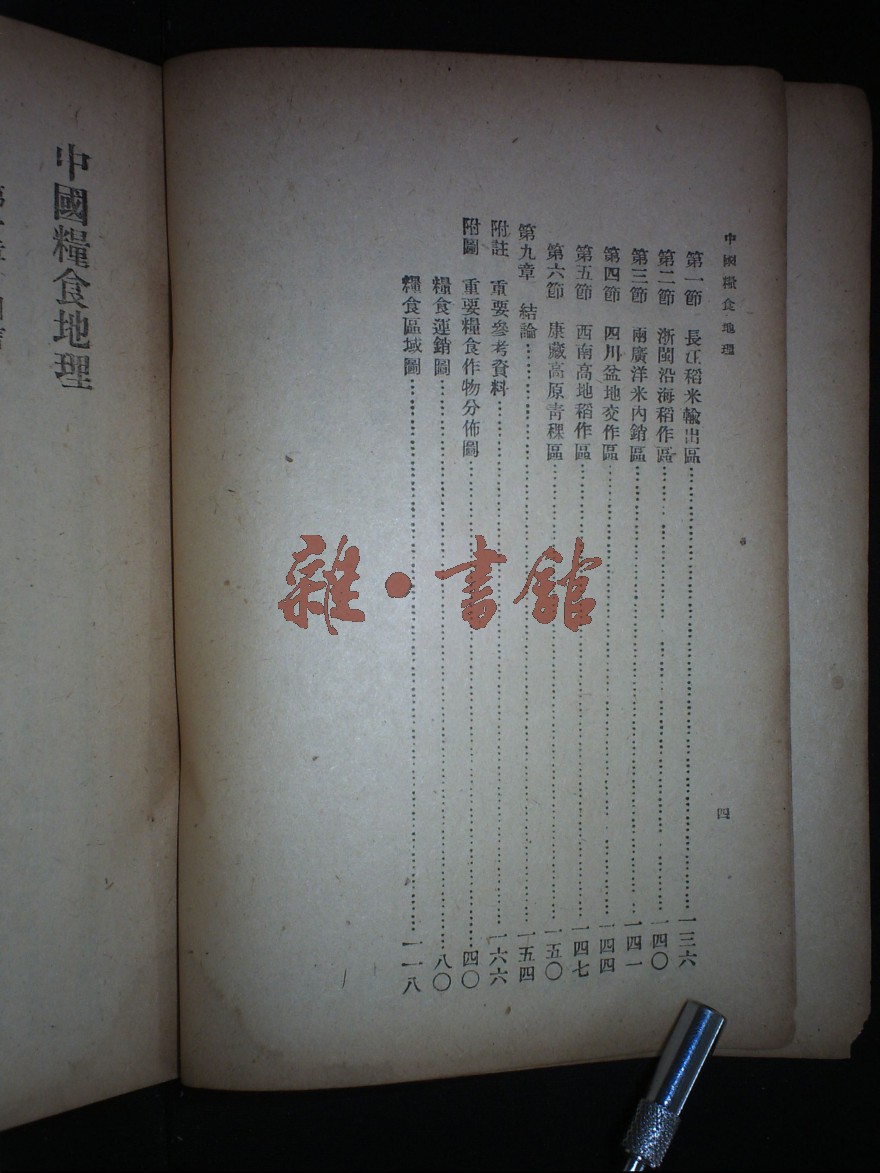 中國糧食地理
第一節　長江稻米輸出區……一三六
第二節　浙閩沿海稻作區……一四〇
第三節　兩廣洋米內銷區……一四一
第四節　四川盆地交作區……一四四
第五節　西南高地稻作區……一四七
第六節　康藏高原青稞區……一五〇
第九章　結論……一五四
附註　重要參考資料……一六六
附圖　重要糧食作物分佈圖……四〇
糧食運銷圖……八〇
糧食區域圖……一一八
四
中國糧食地理
雜·書館